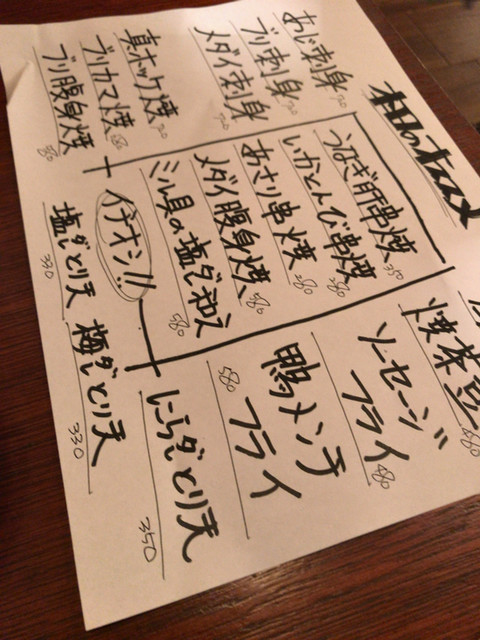 本日のオススメ
あじ刺身 720
ブリ刺身 720
メダイ刺身 720
真ホッケ焼 720
ブリカマ焼 680
ブリ腹身焼 580
うなぎ肝串焼 350
いかとんび串焼 380
あさり串焼 280
メダイ腹身焼 580
ミル貝の塩ダレ和え 580
イチオシ!!
焼茶豆 380
ソーセージ
フライ 480
鴨メンチ
フライ 580
にらダレとり天 350
梅ダレとり天 330
塩ダレとり天 330